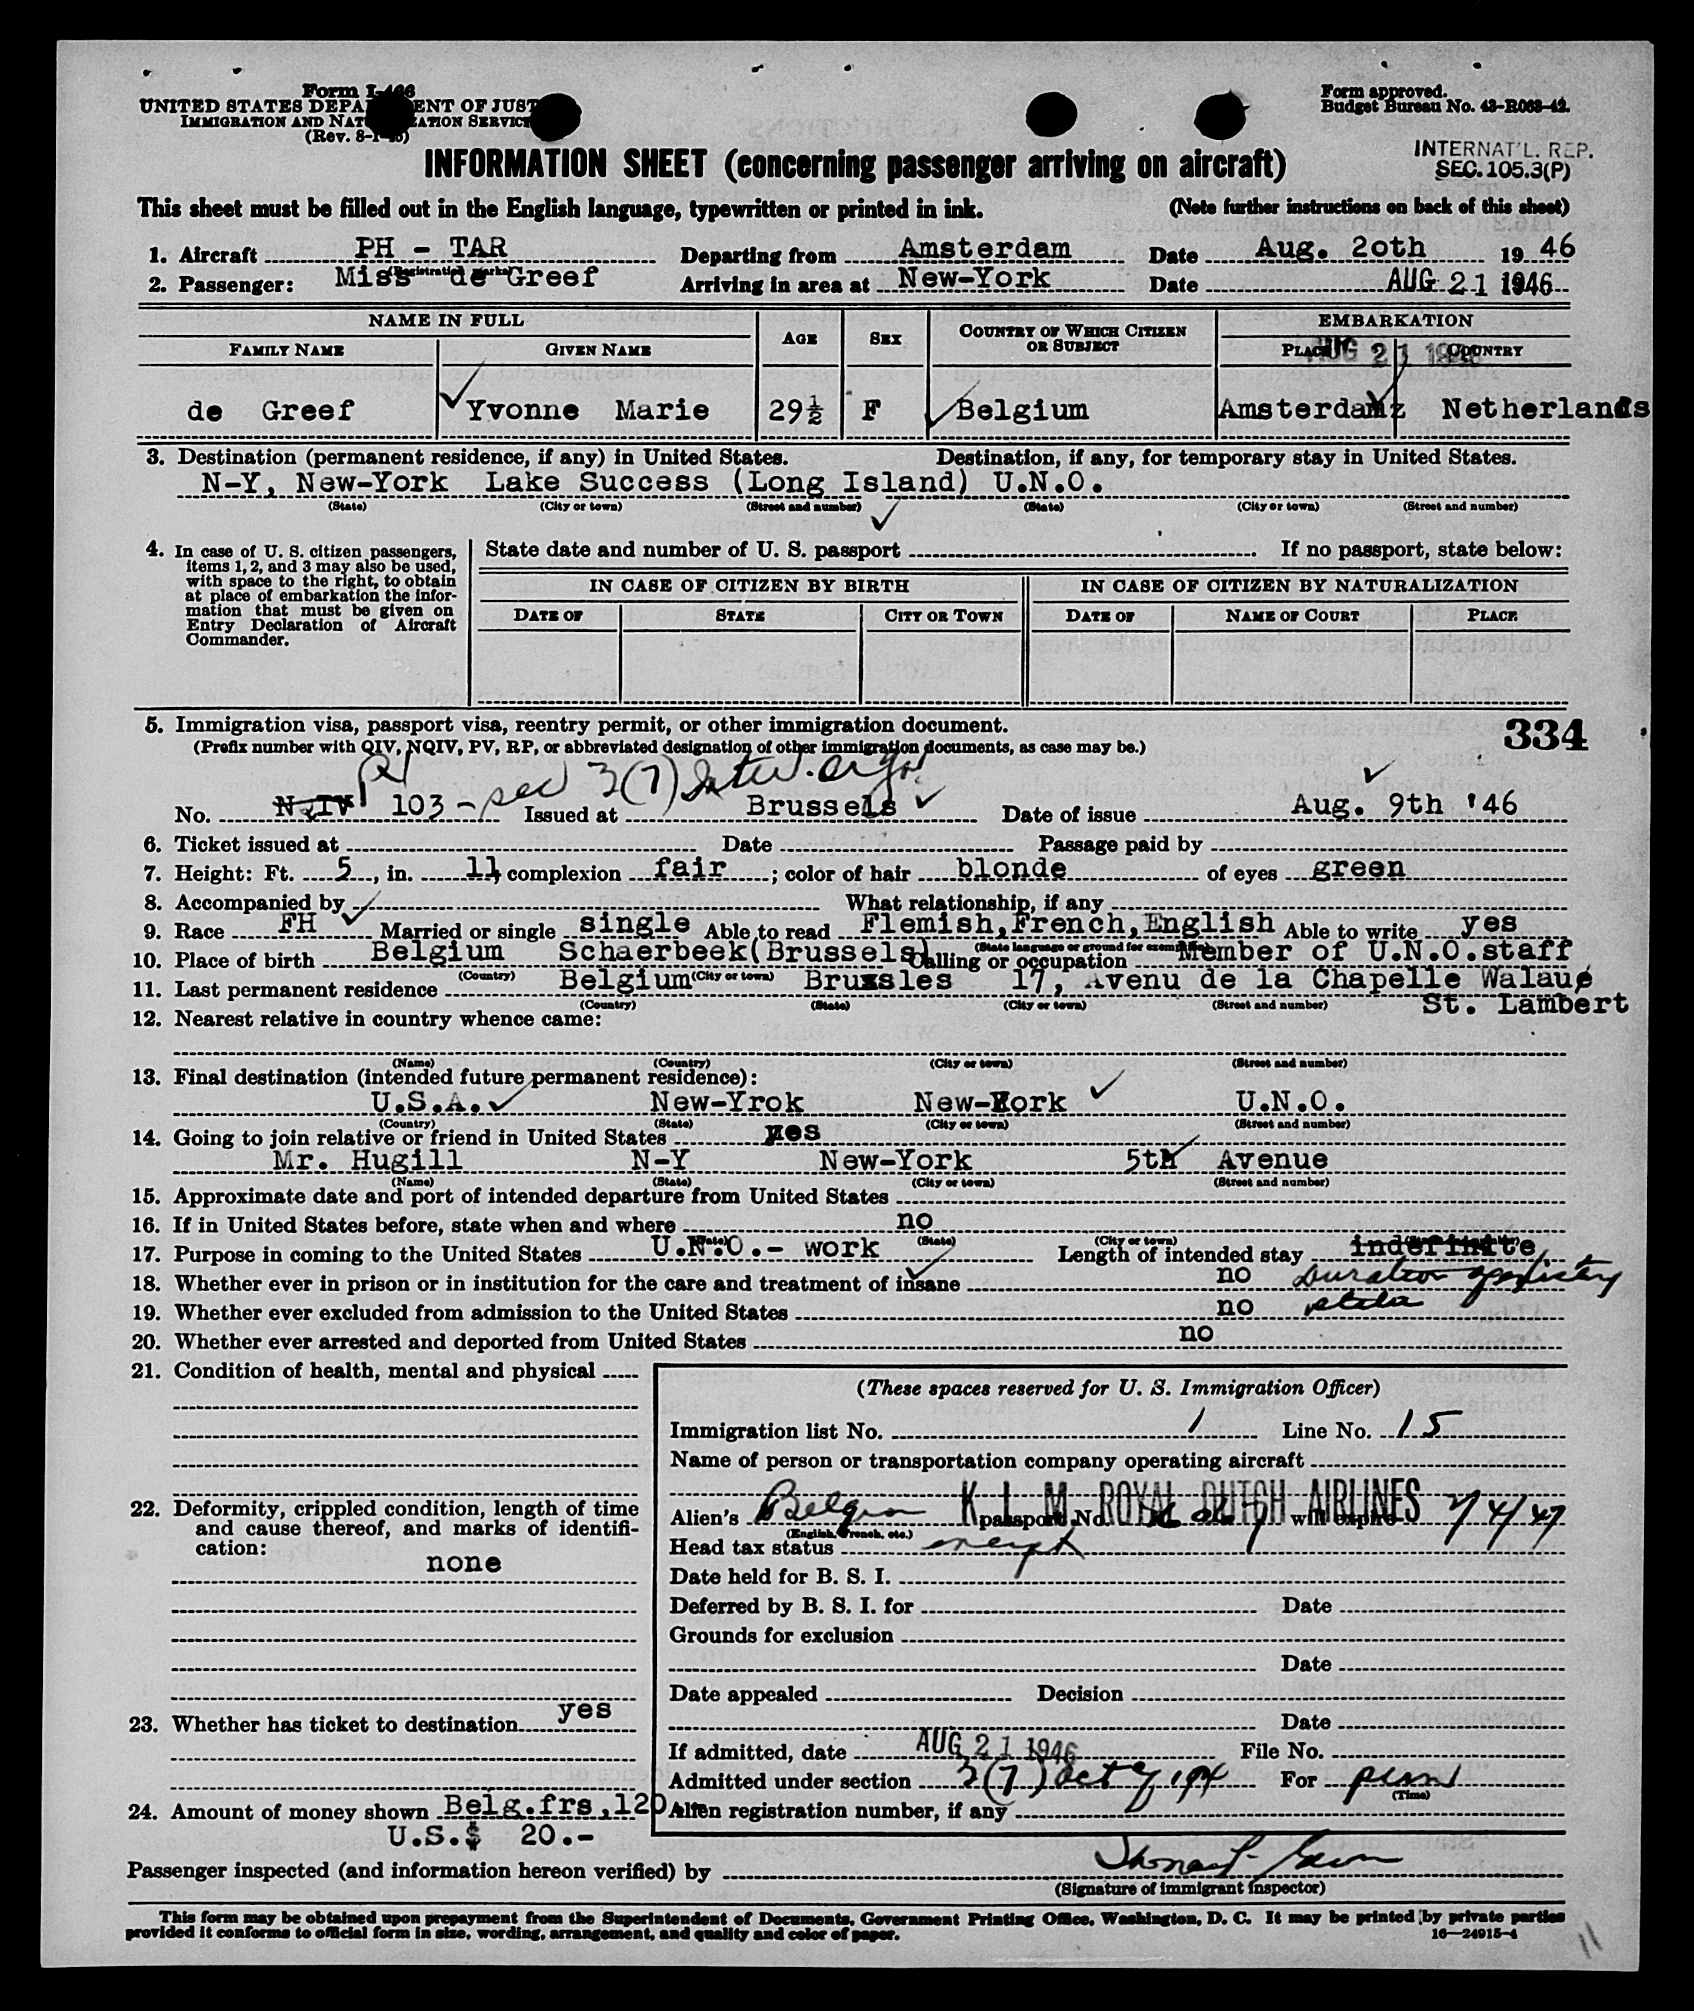 Form I-466
UNITED STATES DEPARTMENT OF JUSTICE
IMMIGRATION AND NATURALIZATION SERVICE
(Rev. 8-1-45)
Form approved.
Budget Bureau No. 43-R063-42.
INTERNAT'L. REP.
SEC. 105.3(P)
INFORMATION SHEET (concerning passenger arriving on aircraft)
This sheet must be filled out in the English language, typewritten or printed in ink. (Note further instructions on back of this sheet)
1. Aircraft PH - TAR Departing from Amsterdam Date Aug. 2oth 19 46
(Registration marks)
2. Passenger: Miss de Greef Arriving in area at New-York Date AUG 21 1946
NAME IN FULL AGE SEX COUNTRY OF WHICH CITIZEN OR SUBJECT EMBARKATION
FAMILY NAME GIVEN NAME PLACE COUNTRY
AUG 21 1946
de Greef Yvonne Marie 29½ F Belgium Amsterdam Netherlands
3. Destination (permanent residence, if any) in United States. Destination, if any, for temporary stay in United States.
N-Y, New-York Lake Success (Long Island) U.N.O.
(State) (City or town) (Street and number) (State) (City or town) (Street and number)
4. In case of U. S. citizen passengers, items 1, 2, and 3 may also be used, with space to the right, to obtain at place of embarkation the information that must be given on Entry Declaration of Aircraft Commander.
State date and number of U. S. passport If no passport, state below:
IN CASE OF CITIZEN BY BIRTH IN CASE OF CITIZEN BY NATURALIZATION
DATE OF STATE CITY OR TOWN DATE OF NAME OF COURT PLACE
5. Immigration visa, passport visa, reentry permit, or other immigration document.
334
(Prefix number with QIV, NQIV, PV, RP, or abbreviated designation of other immigration documents, as case may be.)
sec 3(7)
No. NQIV 103 - Issued at Brussels Date of issue Aug. 9th '46
6. Ticket issued at Date Passage paid by
7. Height: Ft. 5, in. 11, complexion fair; color of hair blonde of eyes green
8. Accompanied by What relationship, if any
9. Race FH Married or single single Able to read Flemish,French,English Able to write yes
(State language or ground for exemption)
10. Place of birth Belgium Schaerbeek(Brussels) Calling or occupation Member of U.N.O.staff
(Country) (City or town)
11. Last permanent residence Belgium Brussles 17, Avenu de la Chapelle Walaue
St. Lambert
(Country) (State) (City or town) (Street and number)
12. Nearest relative in country whence came:
(Name) (Country) (City or town) (Street and number)
13. Final destination (intended future permanent residence):
U.S.A. New-Yrok New-York U.N.O.
(Country) (State) (City or town) (Street and number)
14. Going to join relative or friend in United States yes
Mr. Hugill N-Y New-York 5th Avenue
(Name) (State) (City or town) (Street and number)
15. Approximate date and port of intended departure from United States
16. If in United States before, state when and where no
(Date) (State) (City or town) (Street and number)
17. Purpose in coming to the United States U.N.O.- work Length of intended stay inderinite,
18. Whether ever in prison or in institution for the care and treatment of insane no Duration of
19. Whether ever excluded from admission to the United States no
20. Whether ever arrested and deported from United States no
21. Condition of health, mental and physical
22. Deformity, crippled condition, length of time and cause thereof, and marks of identification:
none
23. Whether has ticket to destination yes
24. Amount of money shown Belg.frs,120.-
U.S.$ 20.-
(These spaces reserved for U. S. Immigration Officer)
Immigration list No. 1 Line No. 15
Name of person or transportation company operating aircraft
K L M ROYAL DUTCH AIRLINES
Alien's Belgian passport No. will expire 7/4/47
(English, French, etc.)
Head tax status exempt
Date held for B. S. I.
Deferred by B. S. I. for Date
Grounds for exclusion
Date
Date appealed Decision
Date
If admitted, date AUG 21 1946 File No.
Admitted under section 3(7) act of For
(Time)
Alien registration number, if any
Passenger inspected (and information hereon verified) by
(Signature of immigrant inspector)
This form may be obtained upon prepayment from the Superintendent of Documents, Government Printing Office, Washington, D. C. It may be printed by private parties
provided it conforms to official form in size, wording, arrangement, and quality and color of paper.
16—24915-4
11